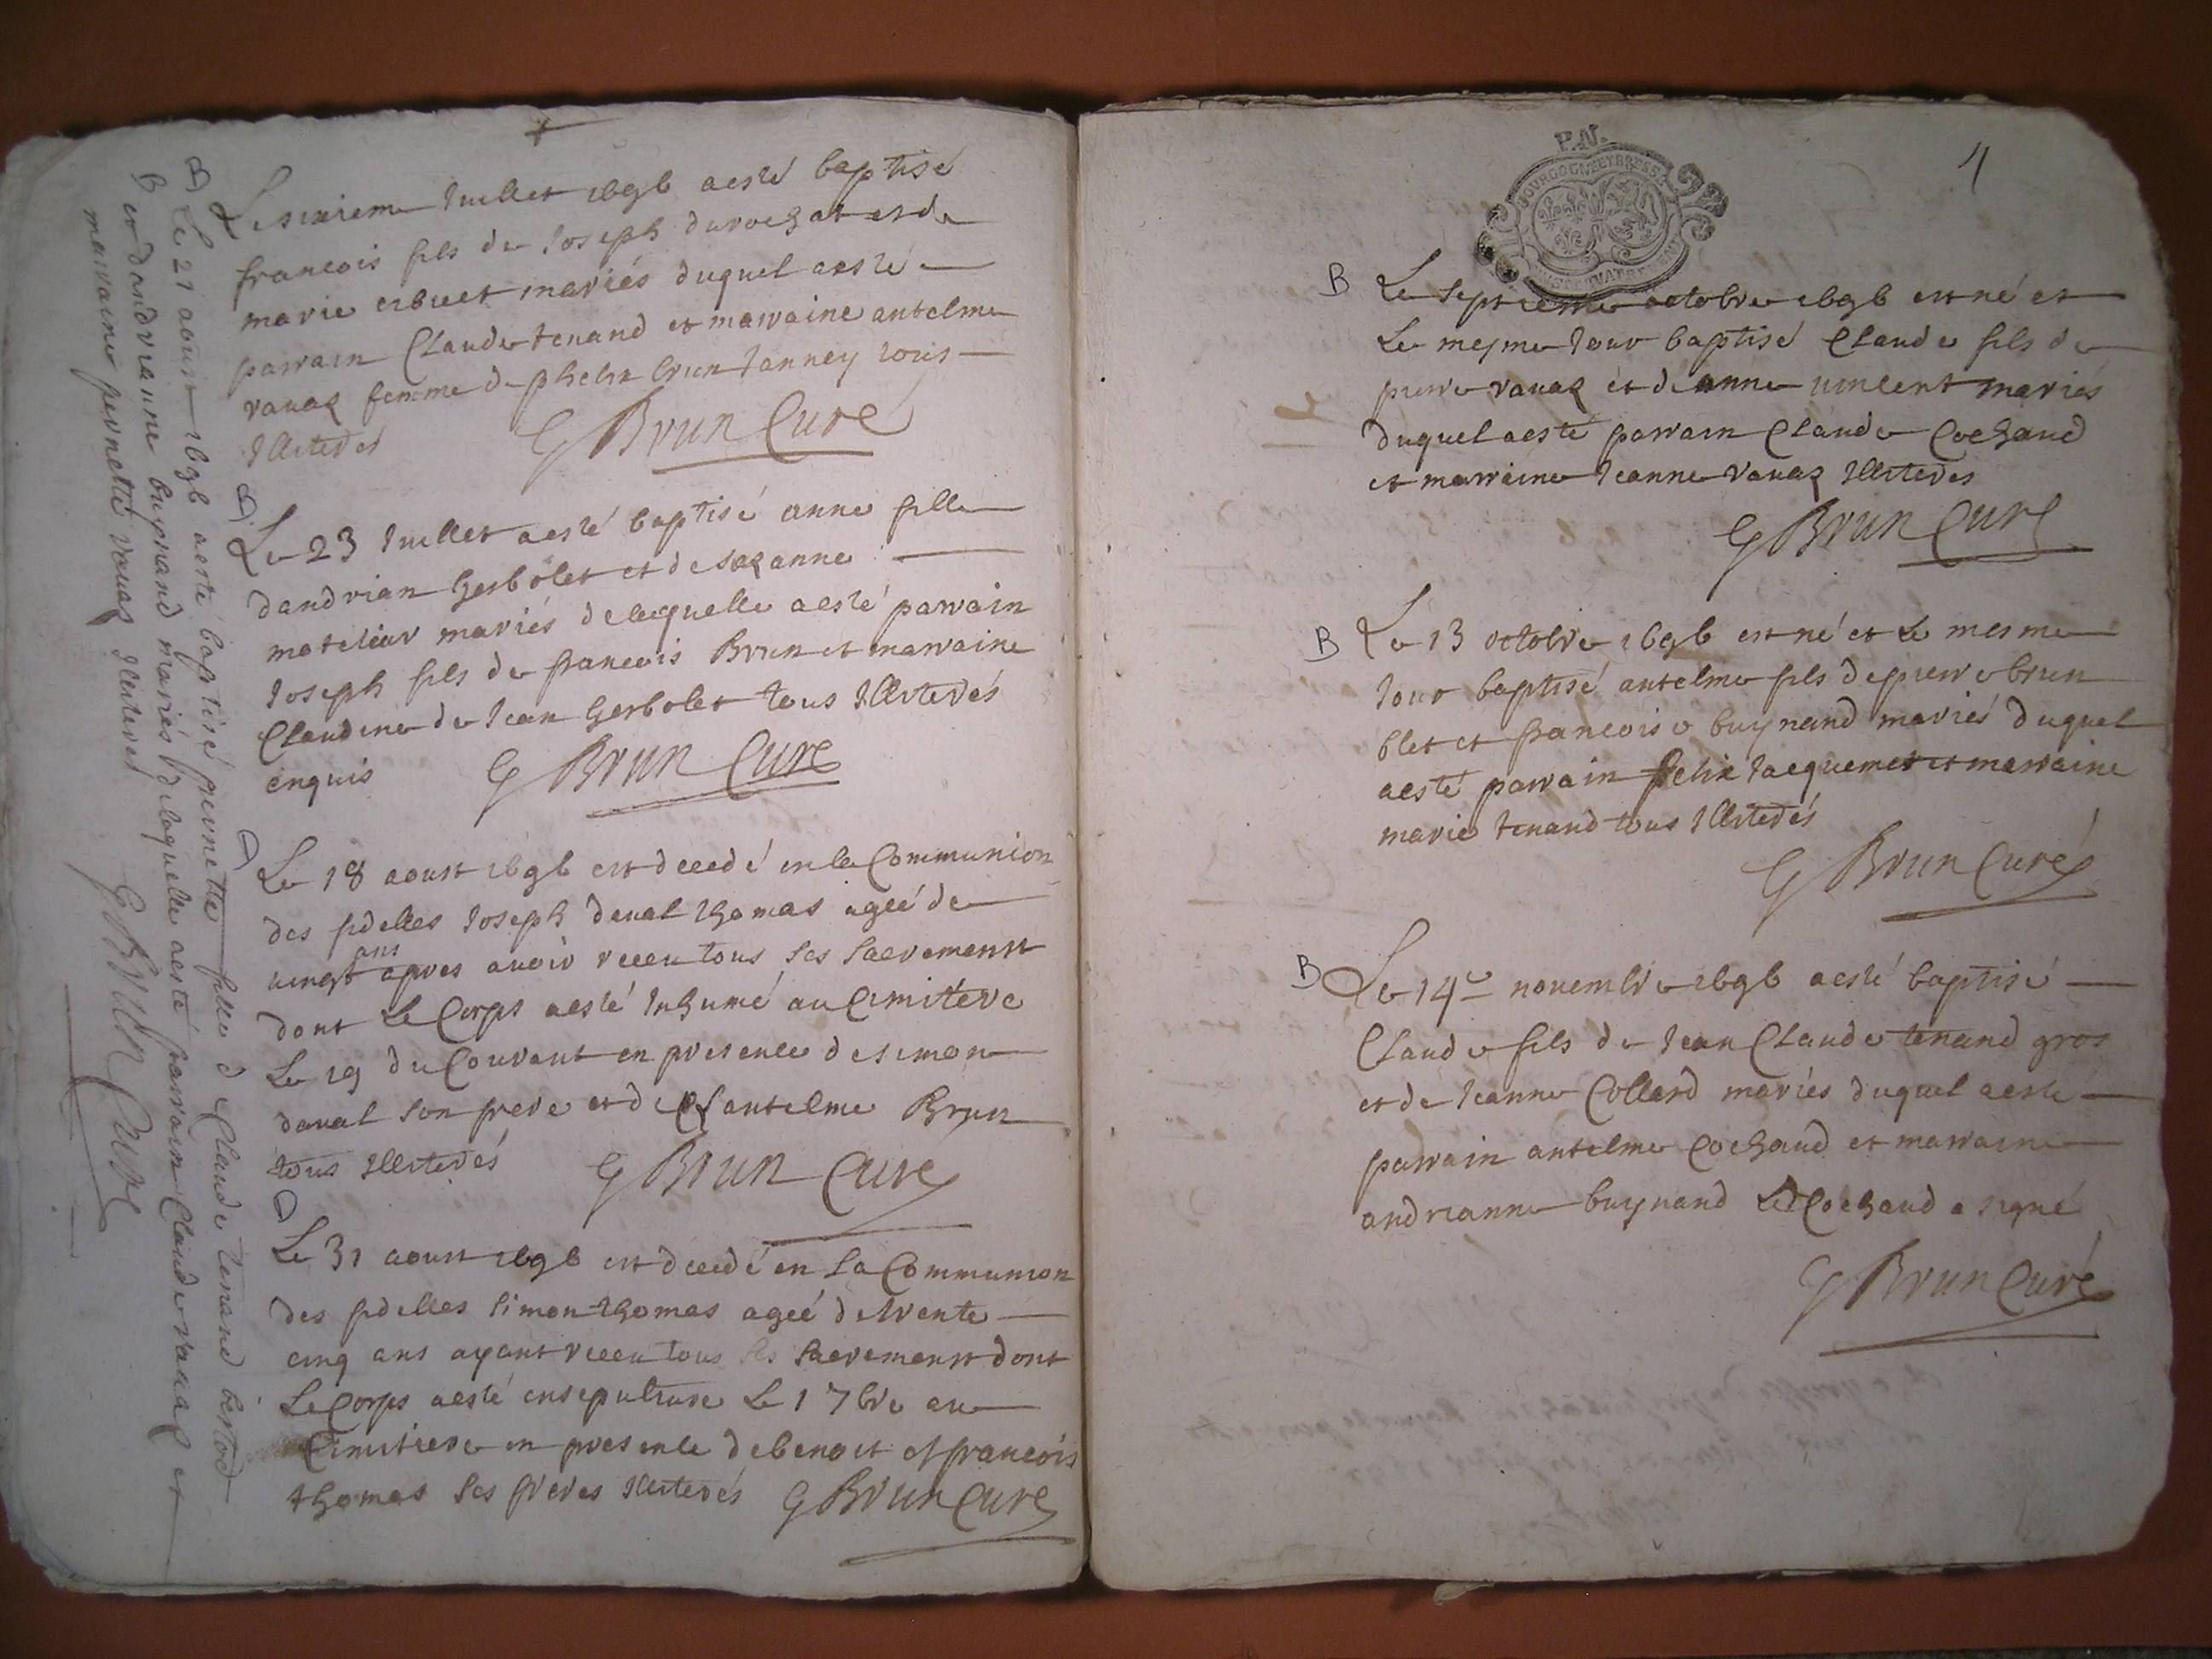 B
Le sixiem Juillet 1696 a esté baptisé
francois fils de Joseph durochat et de
marie mariés duquel a esté
parrain Claude tenand et marraine antelme
ravaz femme de phelix brun tanney tous
Illiterés
G Brun Curé
B
Le 23 Juillet a esté baptisé anne fille
dandrian Gerbolet et de suzanne
mariés de laquelle a esté parrain
Joseph fils de francois Brun et marraine
Claudine de Jean Gerbolet tous Illiterés
enquis
G Brun Curé
Le 18 aoust 1696 est decedé en la Communion
des fidelles Joseph daval thomas ageé de
vingt ans apres avoir receu tous ses Sacrements
dont Le Corps a esté Inhumé au Cimitere
Le 19 du Courant en presence de simon
daval son frere et de antelme Brun
tous Illiterés
G Brun Curé
Le 31 aoust 1696 est decedé en La Communion
des fidelles simon thomas ageé de trente
cinq ans ayant receu tous ses Sacrements dont
Le Corps a esté ensepulture Le 1 7bre au
Cimitiere en presence de benoit et francois
thomas ses freres Illiterés
G Brun Curé
B
Le 21 aoust 1696 a esté baptisé pernette fille de Claude tenand
B et dandrianne buynand mariés de laquelle a esté parrain Claude ravaz et
marraine pernette ravaz Illiterés
G Brun Curé
4
P.N.
BOURGOGNE ET BRESSE
B
Le septiesme octobre 1696 est né et
Le mesme Jour baptisé Claude fils de
pierre ravaz et de anne vincent mariés
duquel a esté parrain Claude Cochand
et marraine Jeanne ravaz Illiterés
G Brun Curé
B
Le 13 octobre 1696 est né et Le mesme
Jour baptisé antelme fils de pierre brun
blet et francoise buynand mariés duquel
a esté parrain felix Jacquemet et marraine
marie tenand tous Illiterés
G Brun Curé
B
Le 14e novembre 1696 a esté baptisé
Claude fils de Jean Claude tenand gros
et de Jeanne Collard mariés duquel a esté
parrain antelme Cochand et marraine
andrianne buynand Led Cochand a signé
G Brun Curé